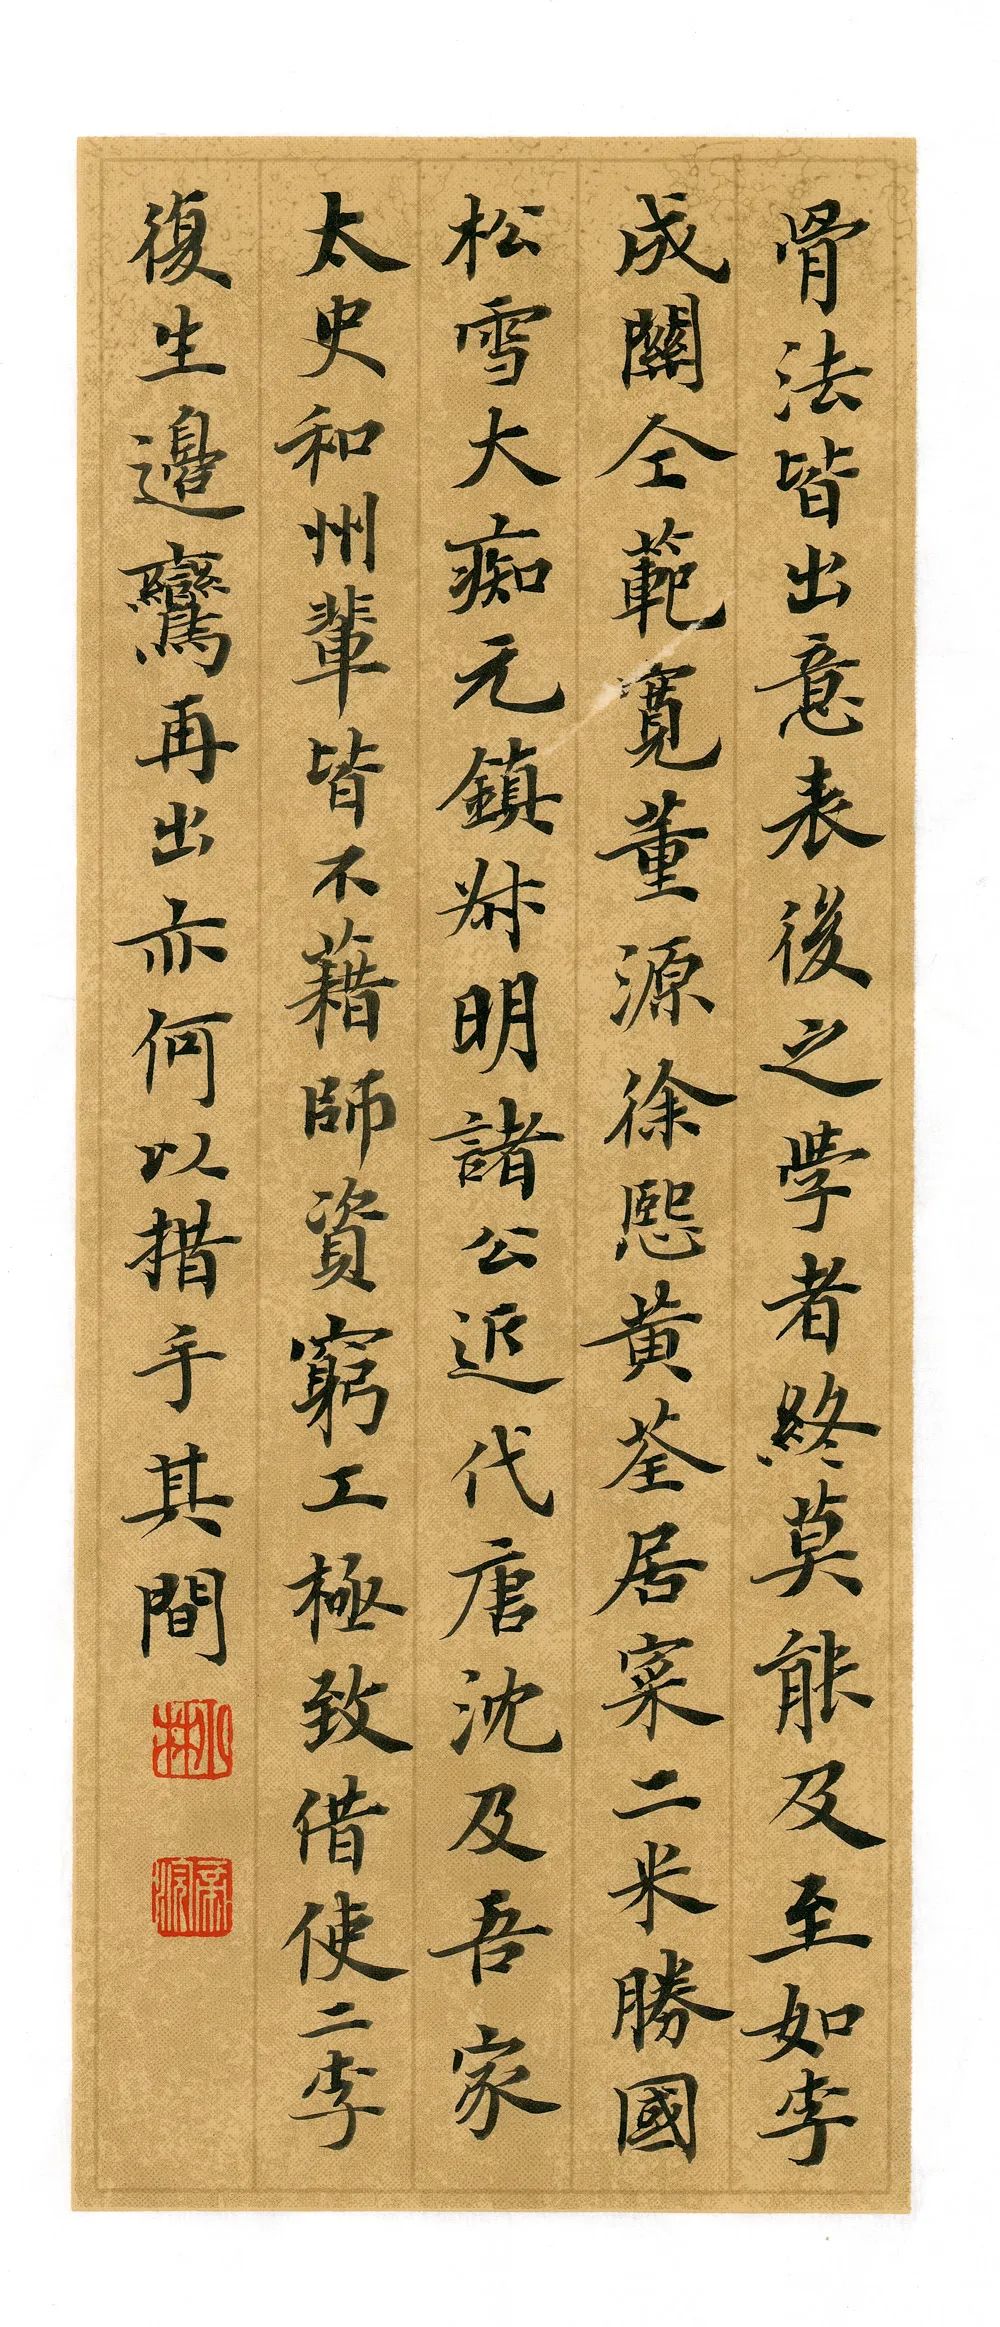 骨法皆出意表後之學者終莫能及至如李
成關仝範寬董源徐熙黄荃居寀二米勝國
松雪大痴元鎮叔明諸公近代唐沈及吾家
太史和州輩皆不藉師資窮工極致借使二李
復生邊鸞再出亦何以措手其間